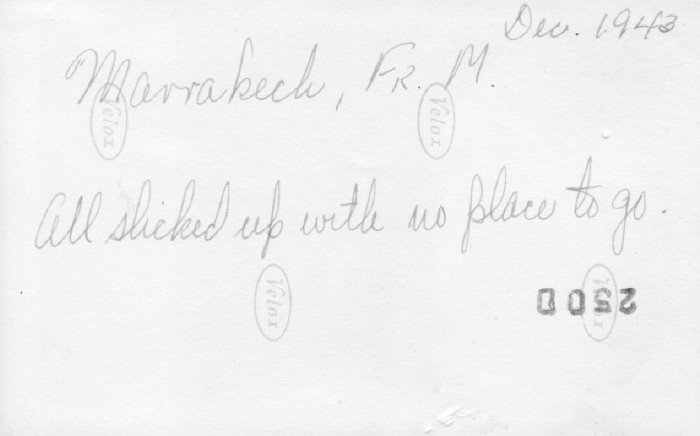 Dec. 1943
Marrakech, Fr. M.
Velox
Velox
All slicked up with no place to go.
Velox
Velox
250D